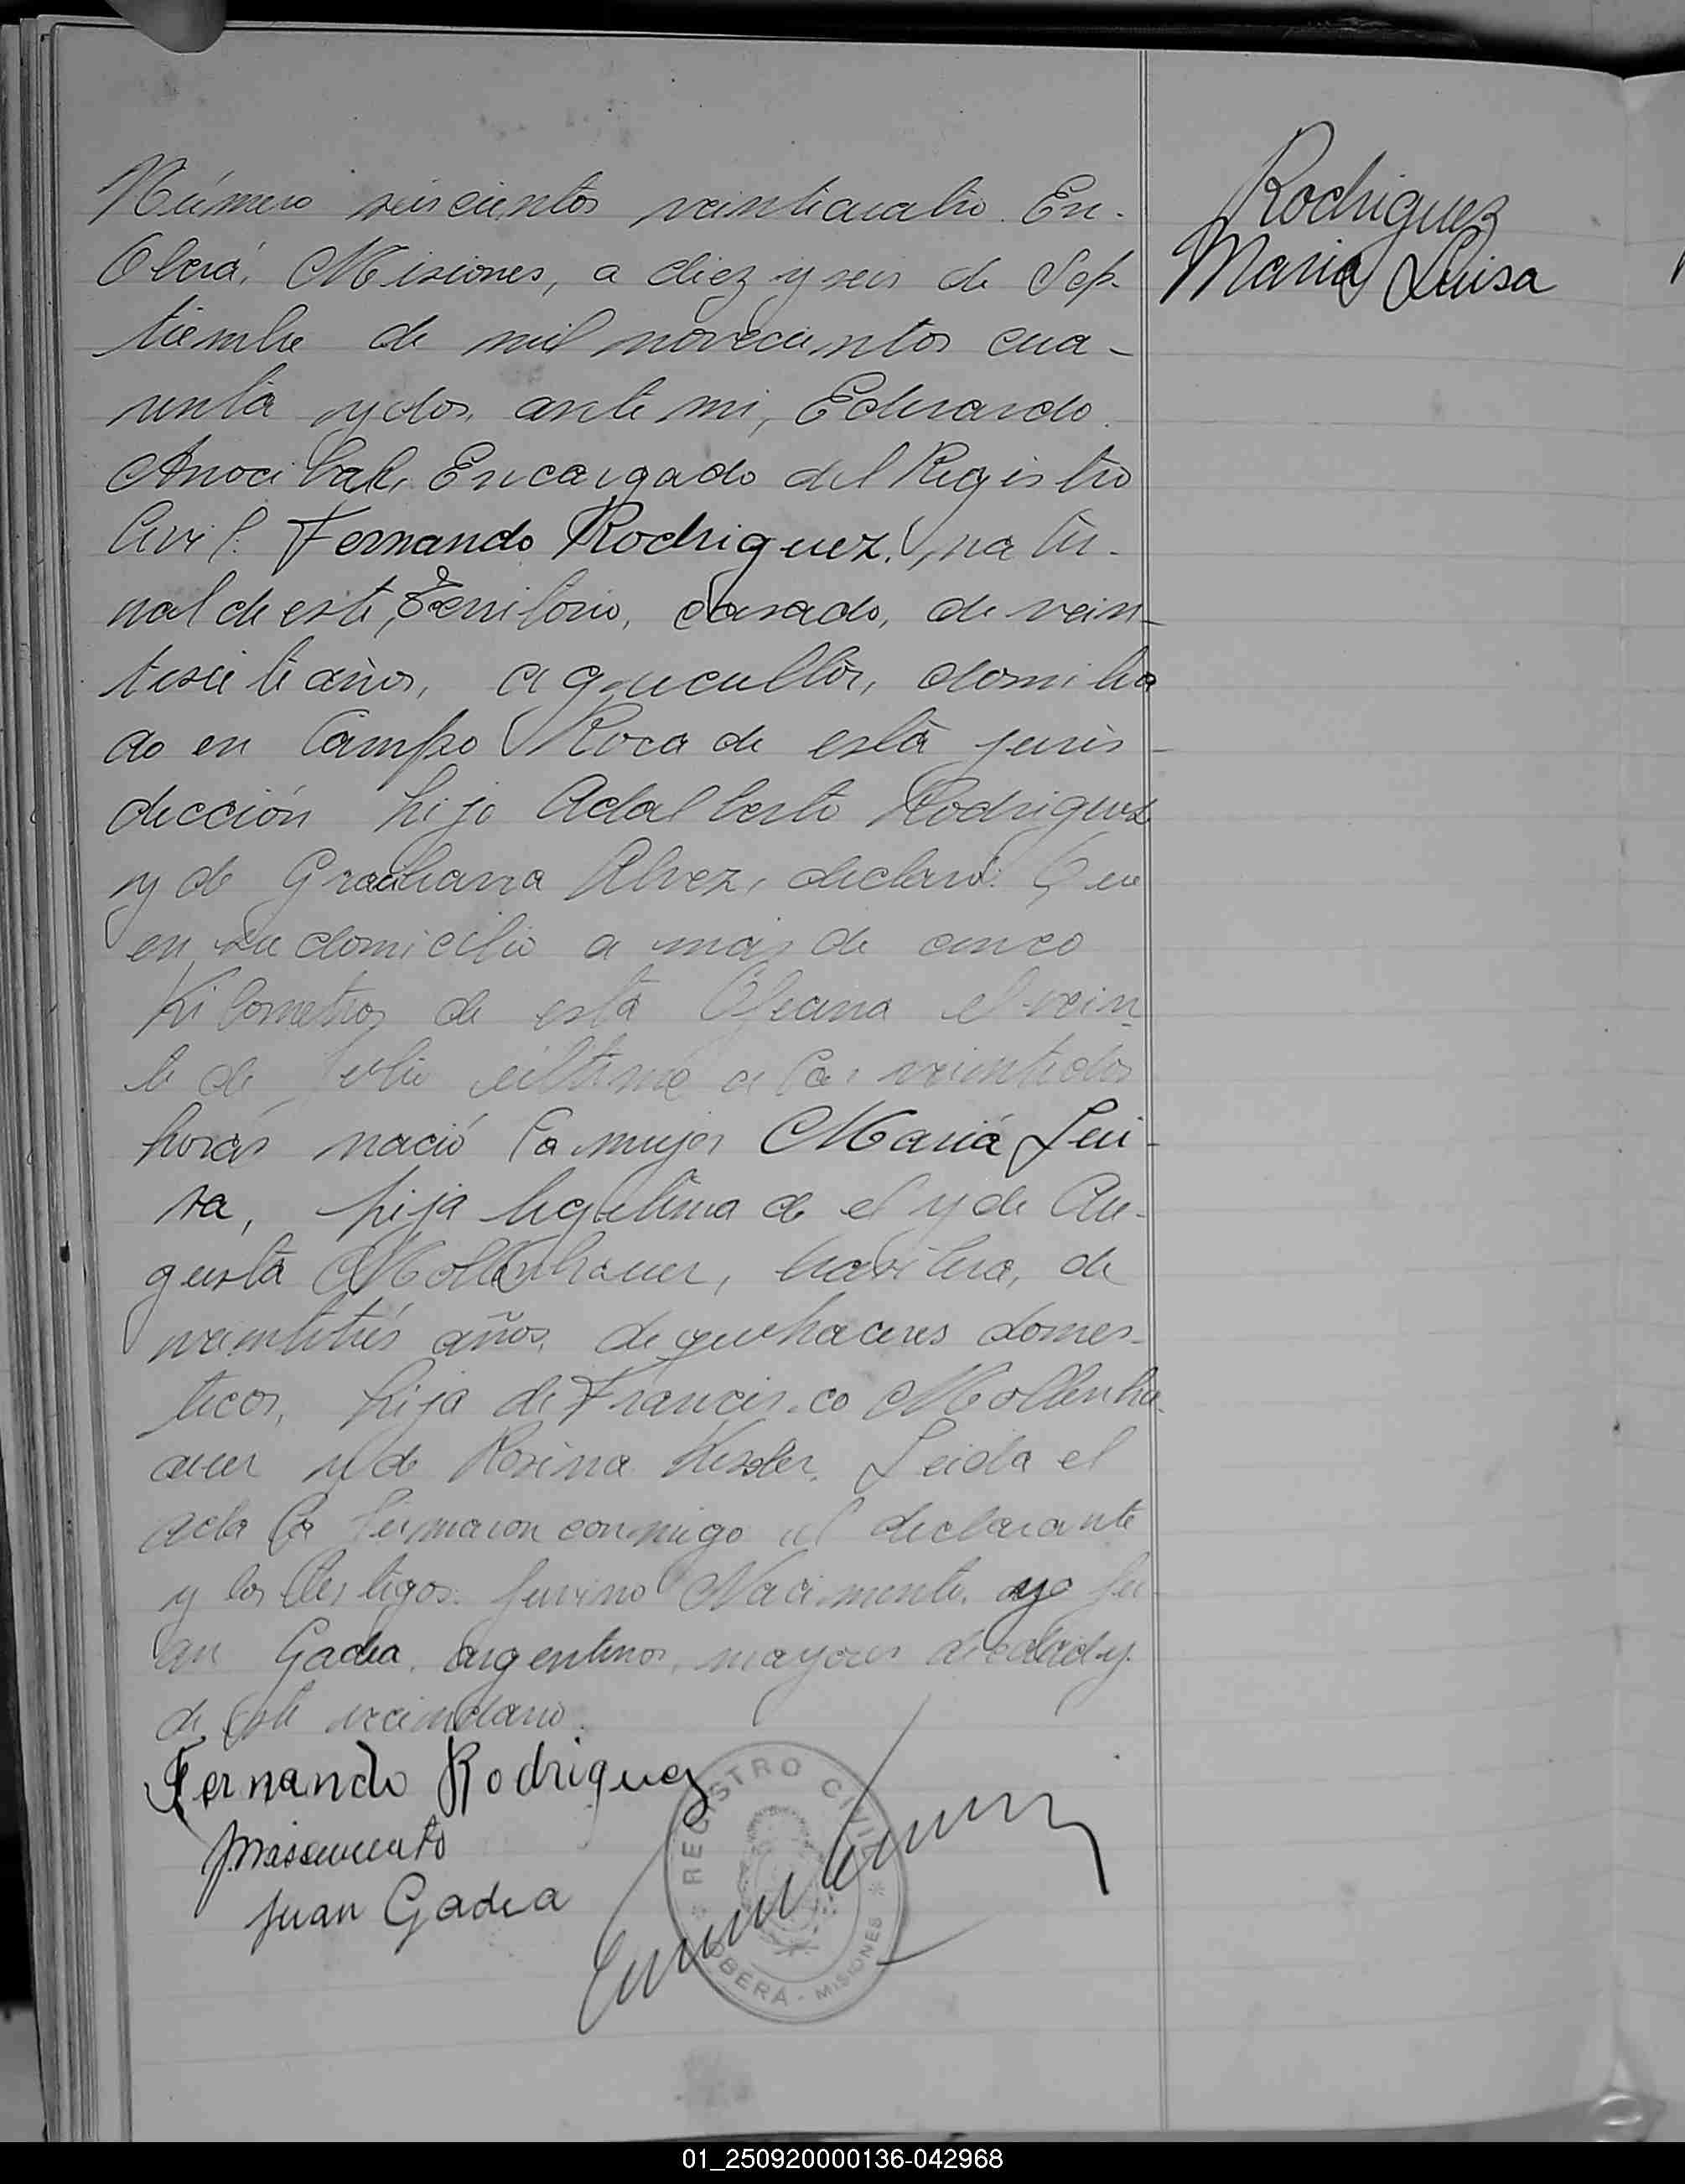 Número seiscientos veinticuatro. En
Oberá, Misiones, a diez y seis de Sep-
tiembre de mil novecientos cua-
renta y dos, ante mi, Eduardo
Anocibar, Encargado del Registro
Civil. Fernando Rodriguez, natu-
ral de este, Territorio, casado, de vein-
tisiete años, agricultor, domicilia
do en Campo Roca de esta juris-
dicción hijo Adalberto Rodriguez
y de Alvez, declaró: Que
en su domicilio a más de cinco
Kilometros de esta Oficina el vein-
te de Julio último a las veintidos
horas nació la mujer María Lui-
sa, hija legitima de el y de Au-
gusta Mollenhauer, brasilera, de
veintitrés años, de quehaceres domes-
ticos, hija de Francisco Mollenha-
auer y de Rosina Kessler. Leida el
acta la firmaron conmigo el declarante
y los testigos. Juvino Nacimento, y Ju-
an Gadea, argentinos, mayores de edad y
de este vecindario.
Fernando Rodriguez
Juan Gadea
REGISTRO CIVIL
OBERÁ - MISIONES
Rodriguez
Maria Luisa
01_250920000136-042968